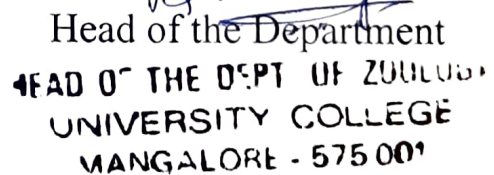 Head of the Department
HEAD OF THE DEPT OF ZOOLOGY
UNIVERSITY COLLEGE
MANGALORE - 575 001